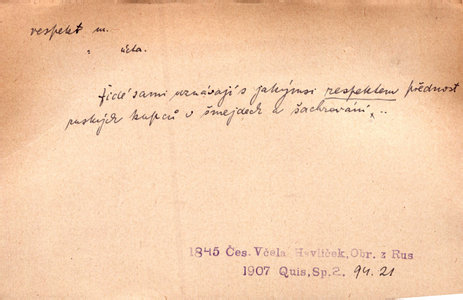 respekt m.
" úcta.
židé sami uznávají s jakýmsi respektem přednost
ruských kupců v šmejdech a šachrování...
1845 Čes. Včela, Havlíček, Obr. z Rus
1907 Quis, Sp. 2. 94. 21